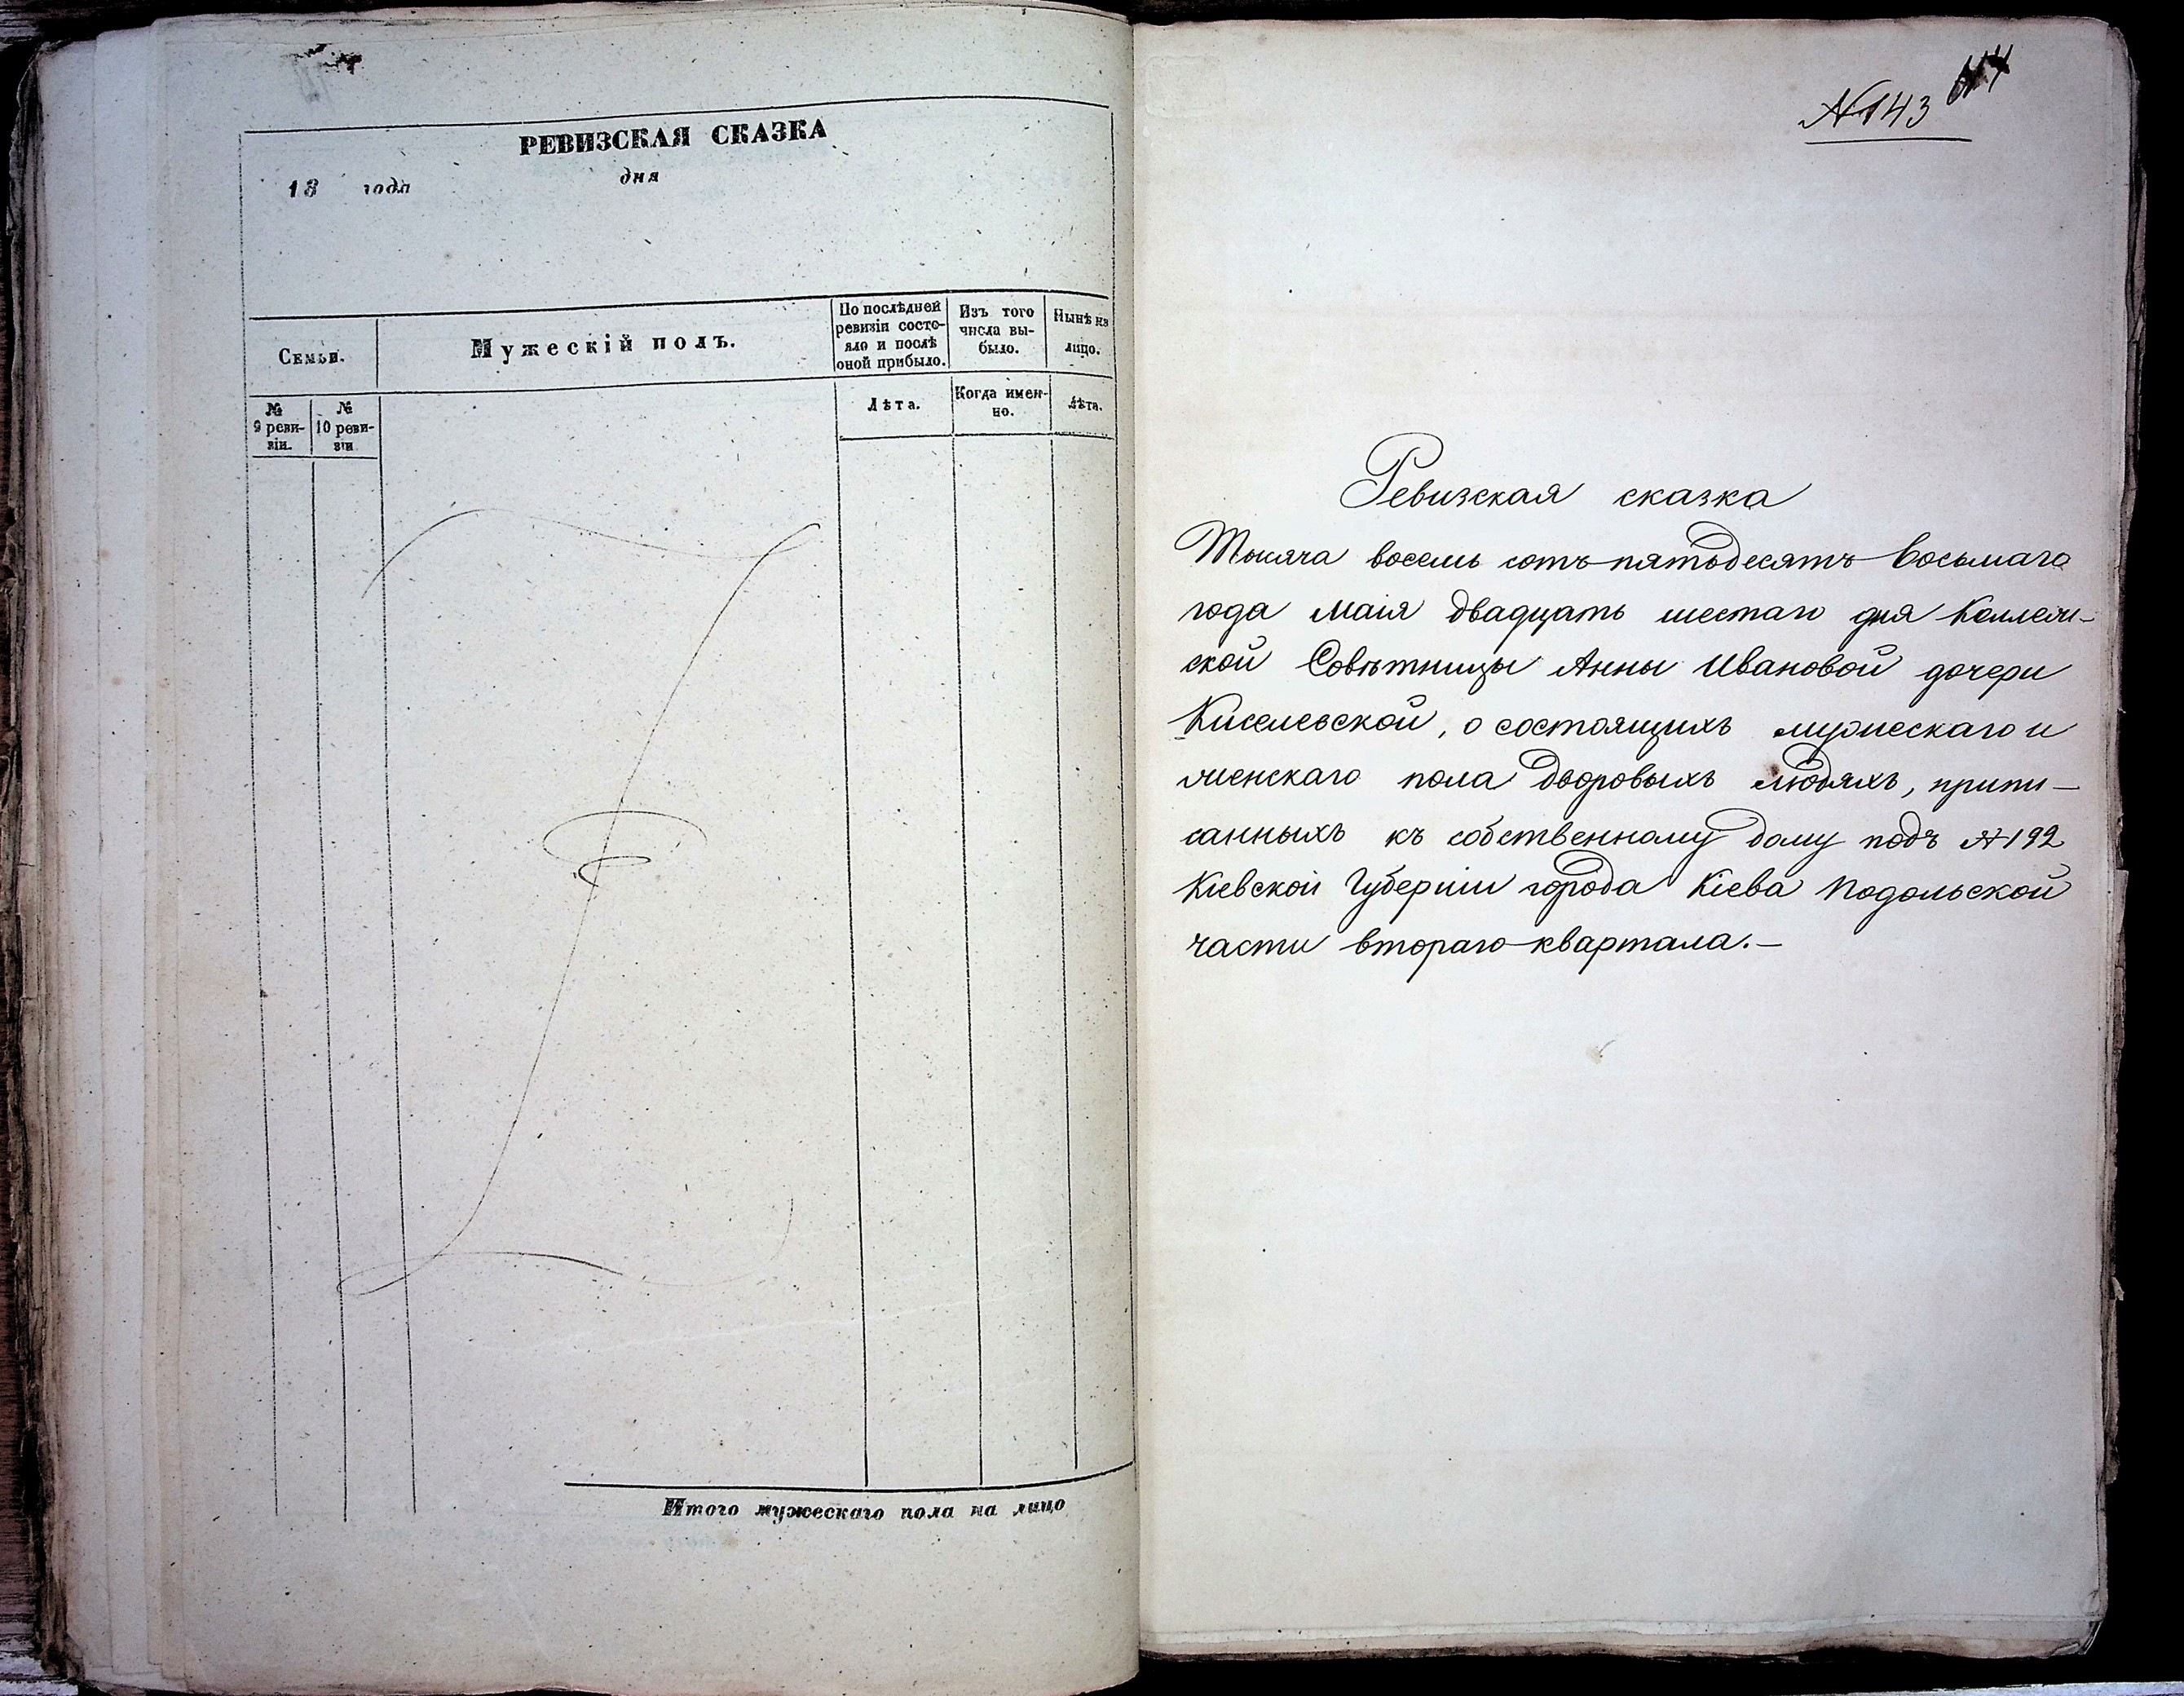 РЕВИЗСКАЯ СКАЗКА
18 года дня
Семьи.
Мужескій полъ.
По послѣдней ревизіи состо-
яло и послѣ оной прибыло.
Изъ того числа вы-
было.
Ныне на лицо.
№ 9 реви-
зіи.
№ 10 реви-
зіи
Лѣта.
Когда имен-
но.
Лѣта.
Итого мужескаго пола на лицо
№143
Ревизская сказка
Тысяча восемь сотъ пятьдесятъ восьмаго
года маія двадцать шестаго дня Коллеж-
ской Совѣтницы Анны Ивановой дочери
Киселевской, о состоящихъ мужескаго и
женскаго пола дворовыхъ людяхъ, припи-
санныхъ къ собственному дому подъ №192
Кіевской Губерніи города Кіева Подольской
части втораго квартала.—